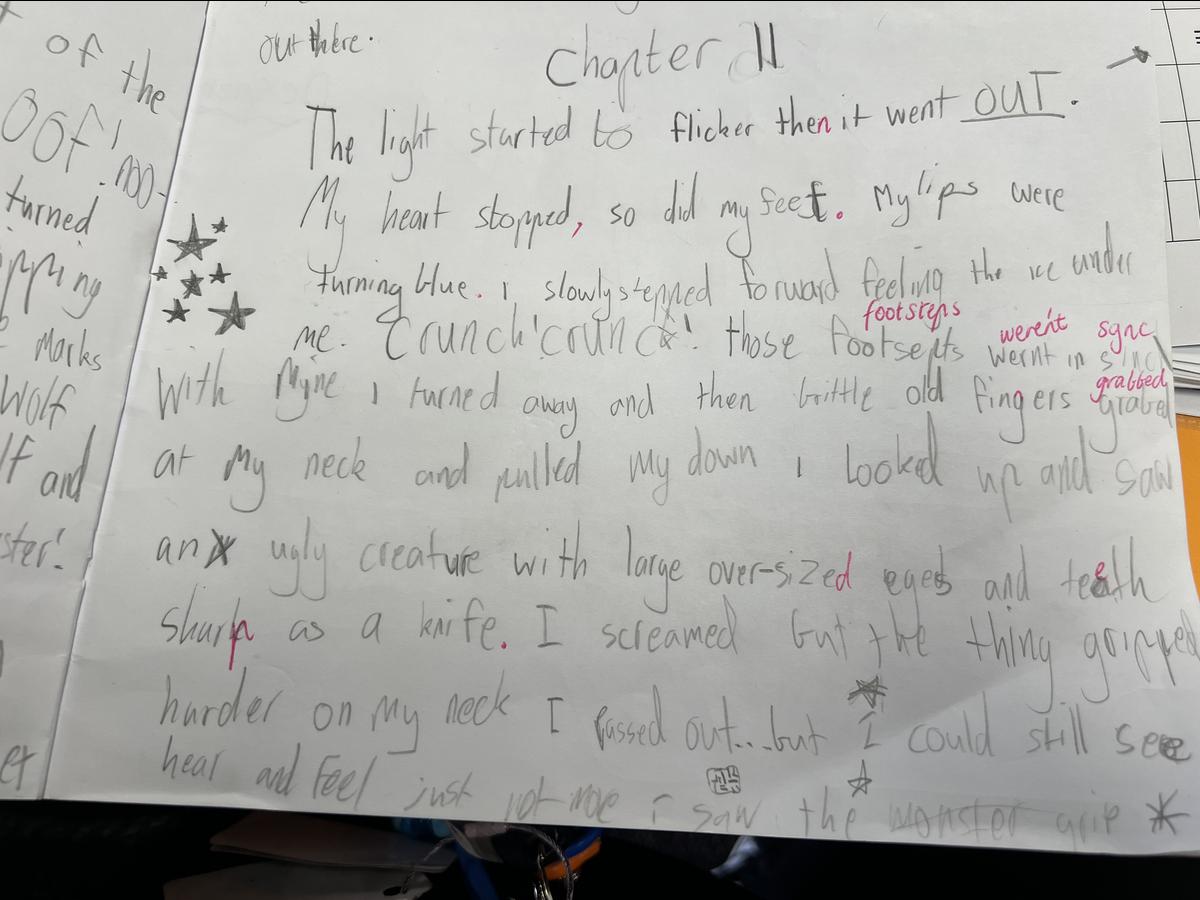 of the
OOf!
-noo-
turned
pping
Marks
Wolf
lf and
ster!
et
out there.
Chapter 11
The light started to flicker then it went OUT.
My heart stopped, so did my feet. My lips were
turning blue. i slowly stepped forward feeling the ice under
me. Crunch! crunch! those footsepts wernt in sinc
footsteps weren't sync
With Myne i turned away and then brittle old fingers grabed
grabbed
at My neck and pulled My down i looked up and saw
an ugly creature with large over-sized eyes and teeth
sharp as a knife. I screamed but the thing gripped
harder on My neck I passed out...but i could still see
hear and Feel just not move i saw the monster grip